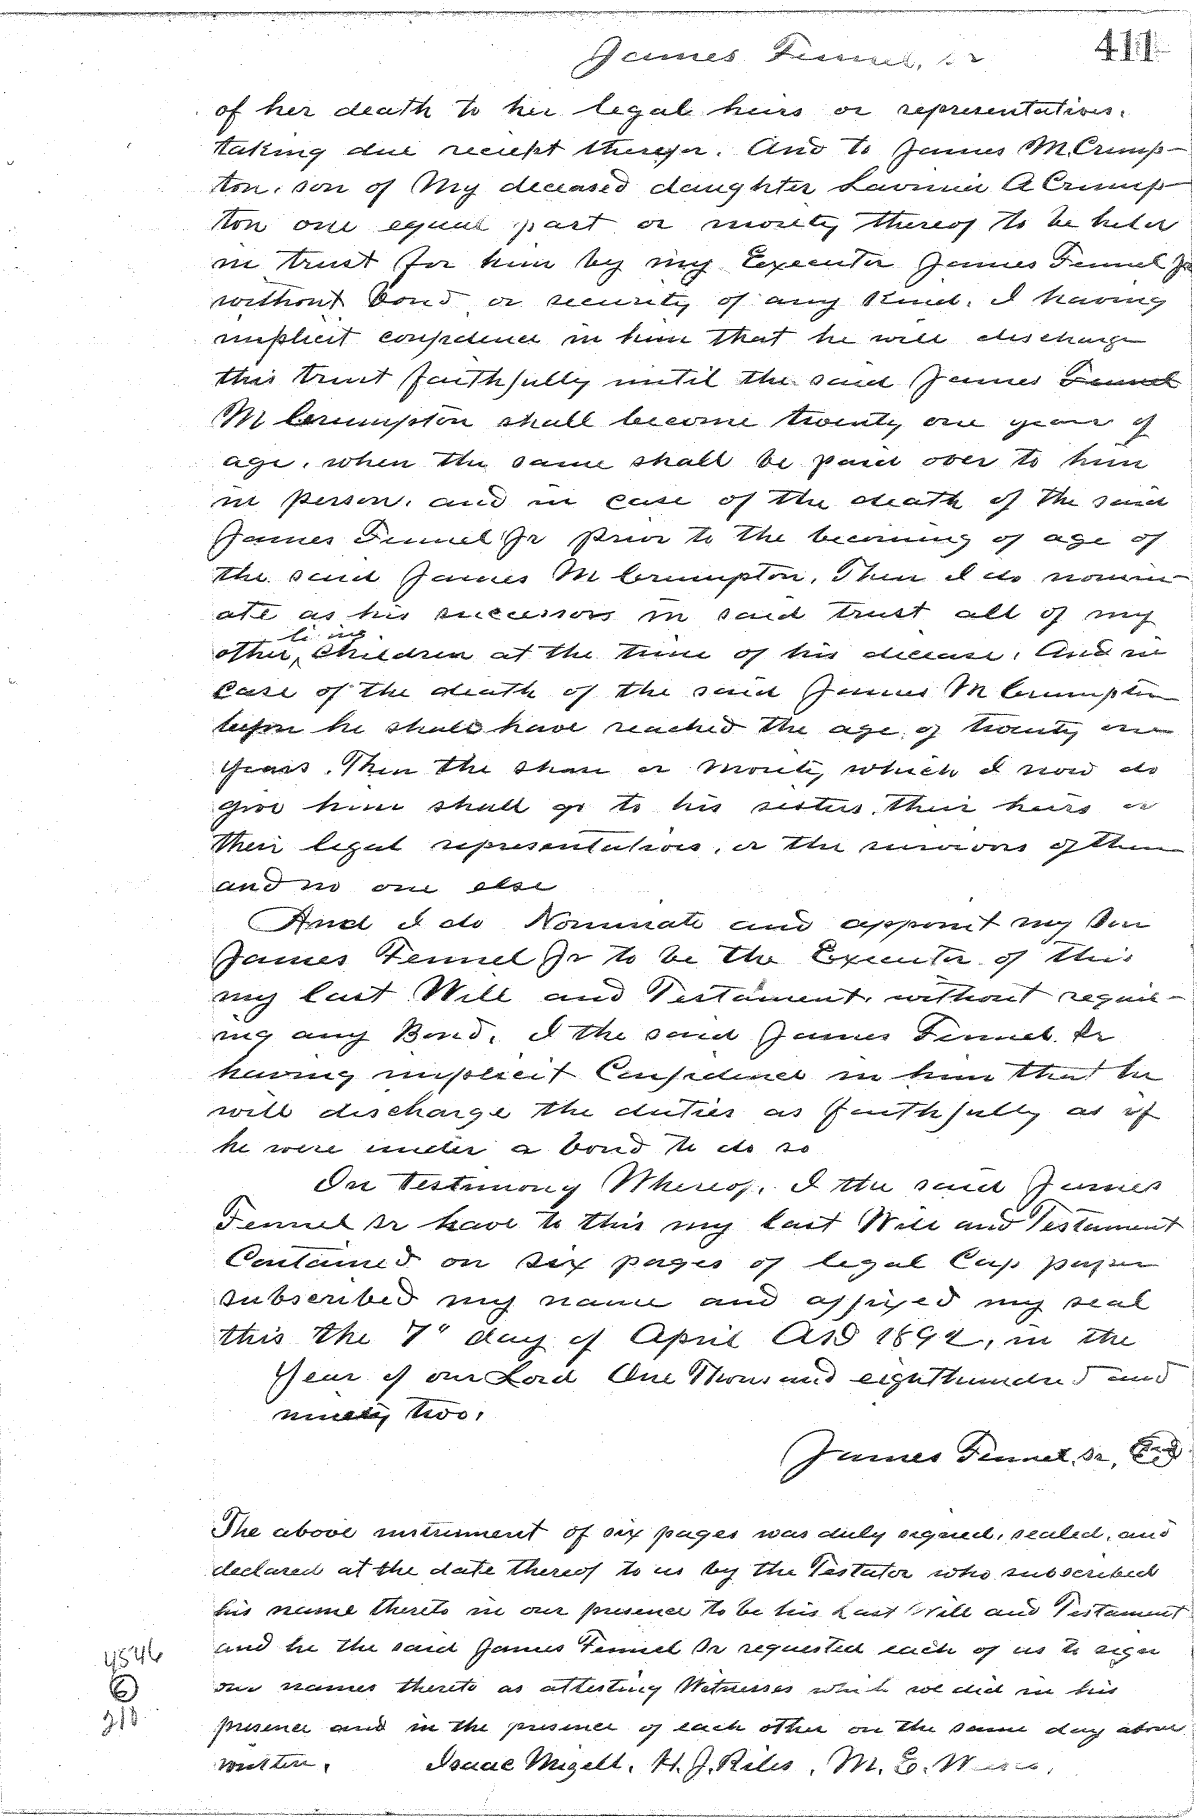 411
James Fennel, Sr
of her death to her legal heirs or representatives.
taking due reciept therefor. And to James M. Crump-
ton. son of My deceased daughter Lavinia A Crump-
ton one equal part or moiety thereof to be held
in trust for him by my Executor James Fennel Jr
without bond or security of any kind. I having
implicit confidence in him that he will discharge
this trust faithfully until the said James Fennel
M Crumpton shall become twenty one years of
age. when the same shall be paid over to him
in person. and in case of the death of the said
James Fennel Jr prior to the becoming of age of
the said James M Crumpton. Then I do nomin-
ate as his successors in said trust all of my
living
other children at the time of his decease. And in
Case of the death of the said James M Crumpton
before he shall have reached the age of twenty one
years. Then the share or Moiety which I now do
give him shall go to his sisters. their heirs or
their legal representatives. or the survivors of them
and no one else
And I do Nominate and appoint my Son
James Fennel Jr to be the Executor of this
my last Will and Testament. without requir-
ing any Bond. I the said James Fennel Sr
having implicit Confidence in him that he
will discharge the duties as faithfully as if
he were under a bond to do so
In testimony Whereof. I the said James
Fennel Sr have to this my last Will and Testament
Contained on six pages of legal Cap paper
subscribed my name and affixed my seal
this the 7" day of April AD 1892, in the
Year of our Lord One Thousand eighthundred and
ninety two.
James Fennel, Sr,
The above instrument of six pages was duly signed, sealed, and
declared at the date thereof to us by the Testator who subscribed
his name thereto in our presence to be his Last Will and Testament
and he the said James Fennel Sr requested each of us to sign
our names thereto as attesting Witnesses which we did in his
presence and in the presence of each other on the same day above
written. Isaac Mizell. H. J. Riles. M. E.
4546
6
210